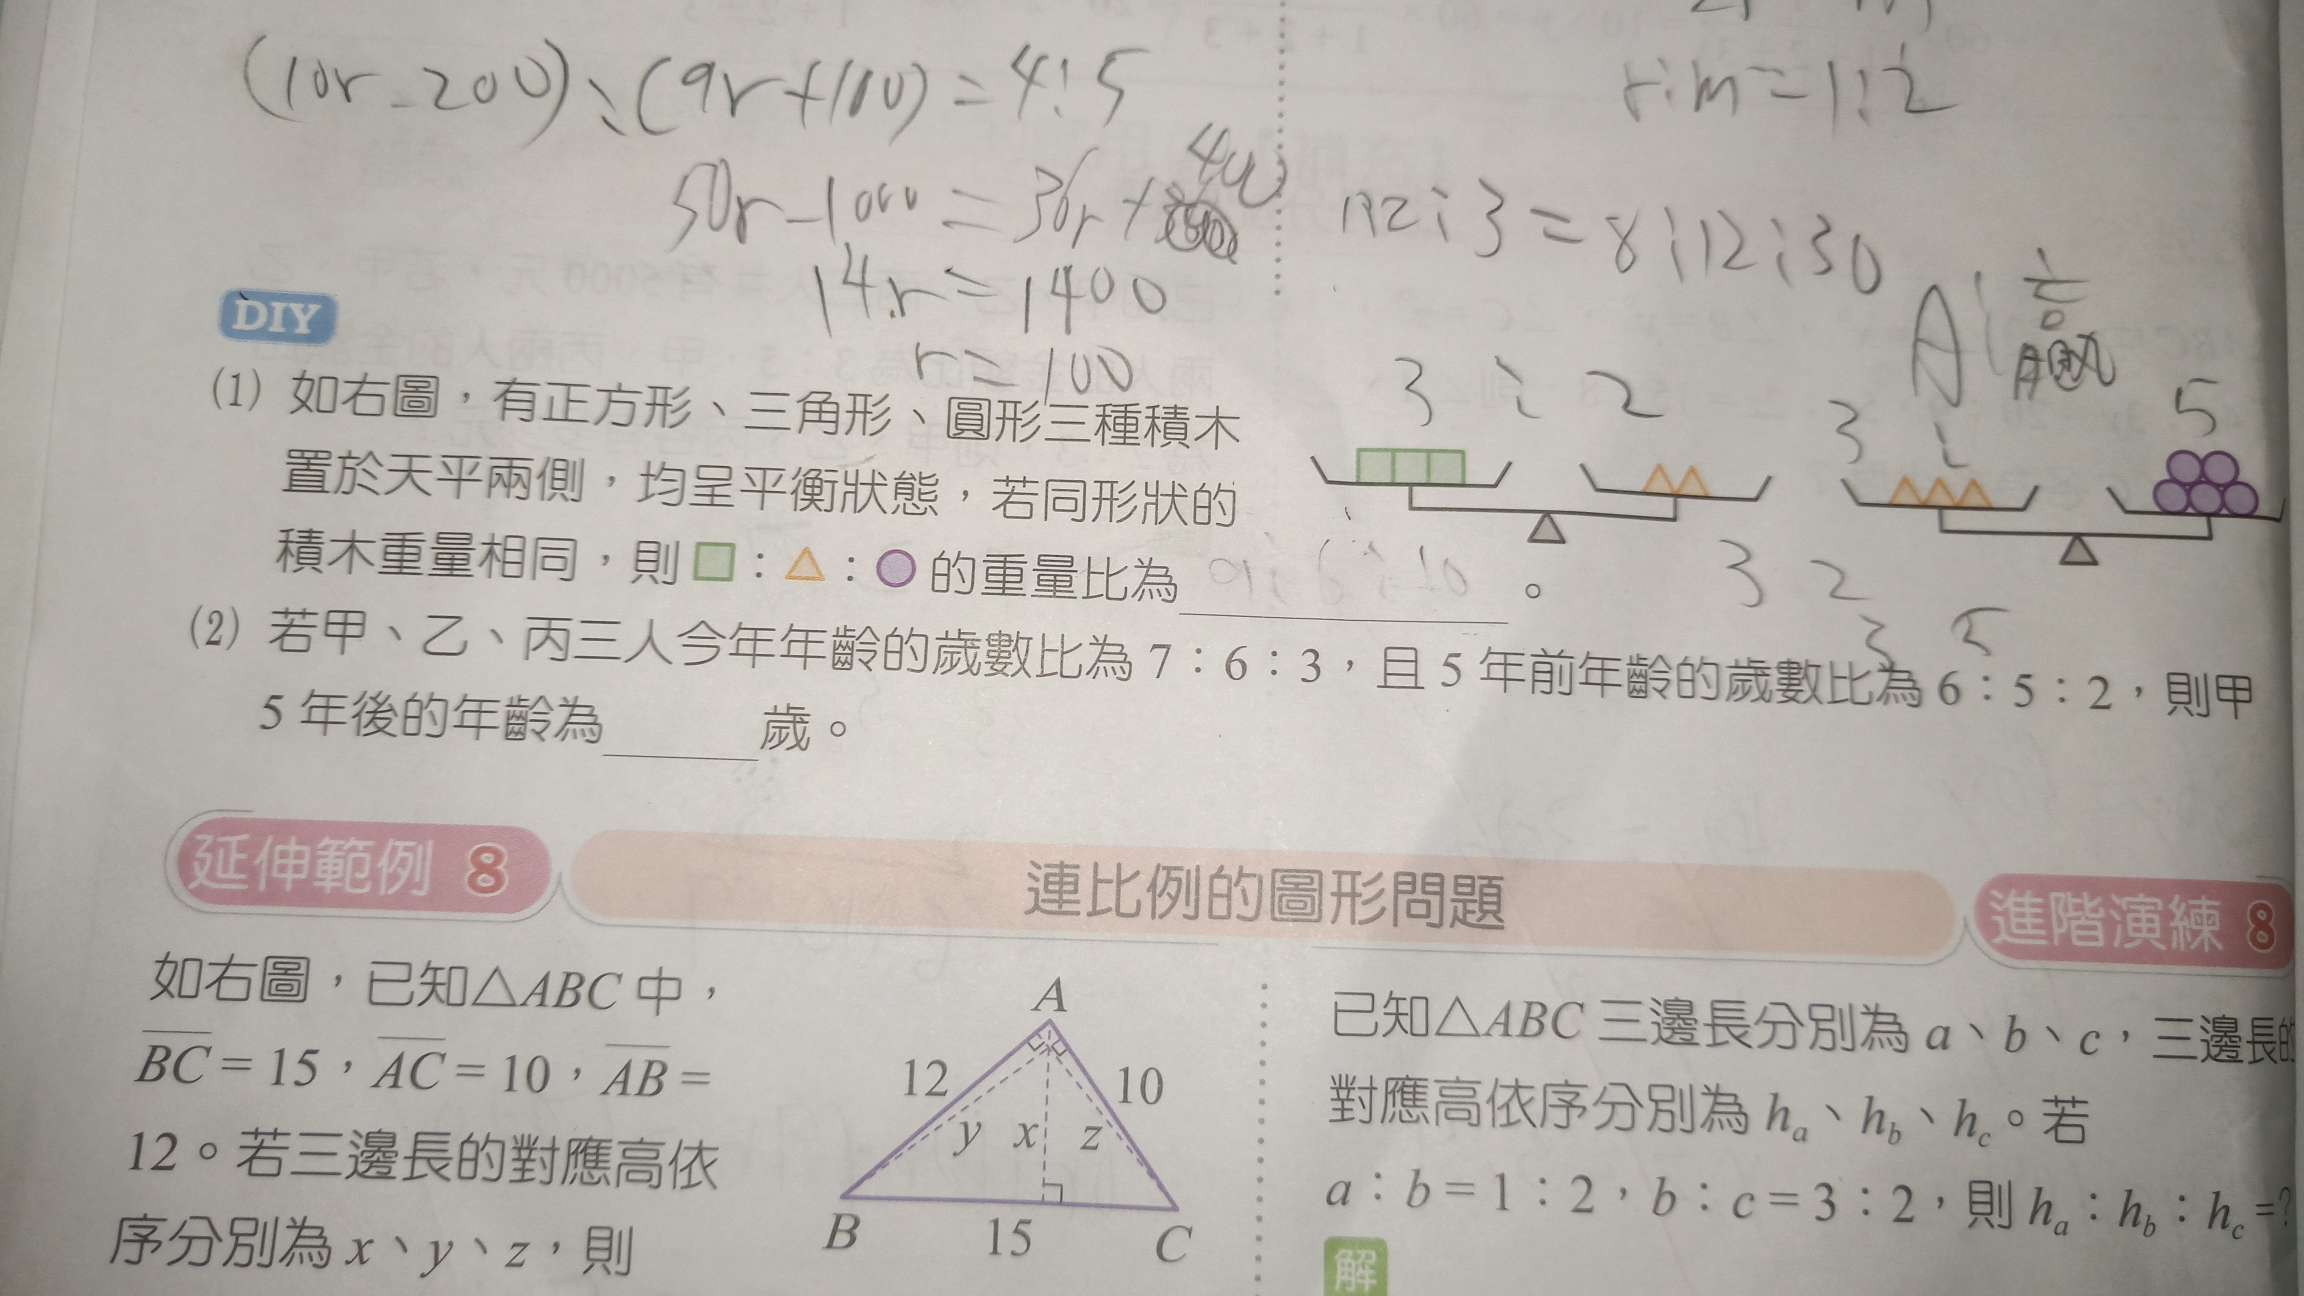 (10r-200):(9r+100)=4:5
r:m=1:2
50r-1000=36r+400
14r=1400
:2:3=8:12:30
r=100
A:
贏
DIY
3:2
3:5
(1) 如右圖，有正方形、三角形、圓形三種積木
置於天平兩側，均呈平衡狀態，若同形狀的
積木重量相同，則□：△：○的重量比為
3 2
3 5
。
(2) 若甲、乙、丙三人今年年齡的歲數比為 7：6：3，且 5 年前年齡的歲數比為 6：5：2，則甲
5 年後的年齡為______歲。
延伸範例 8
連比例的圖形問題
進階演練 8
如右圖，已知△ABC 中，
BC = 15，AC = 10，AB =
12。若三邊長的對應高依
序分別為 x、y、z，則
A
12
10
y
x
z
B
15
C
已知△ABC 三邊長分別為 a、b、c，三邊長的
對應高依序分別為 hₐ、h_b、h_c。若
a：b = 1：2，b：c = 3：2，則 hₐ：h_b：h_c =?
解